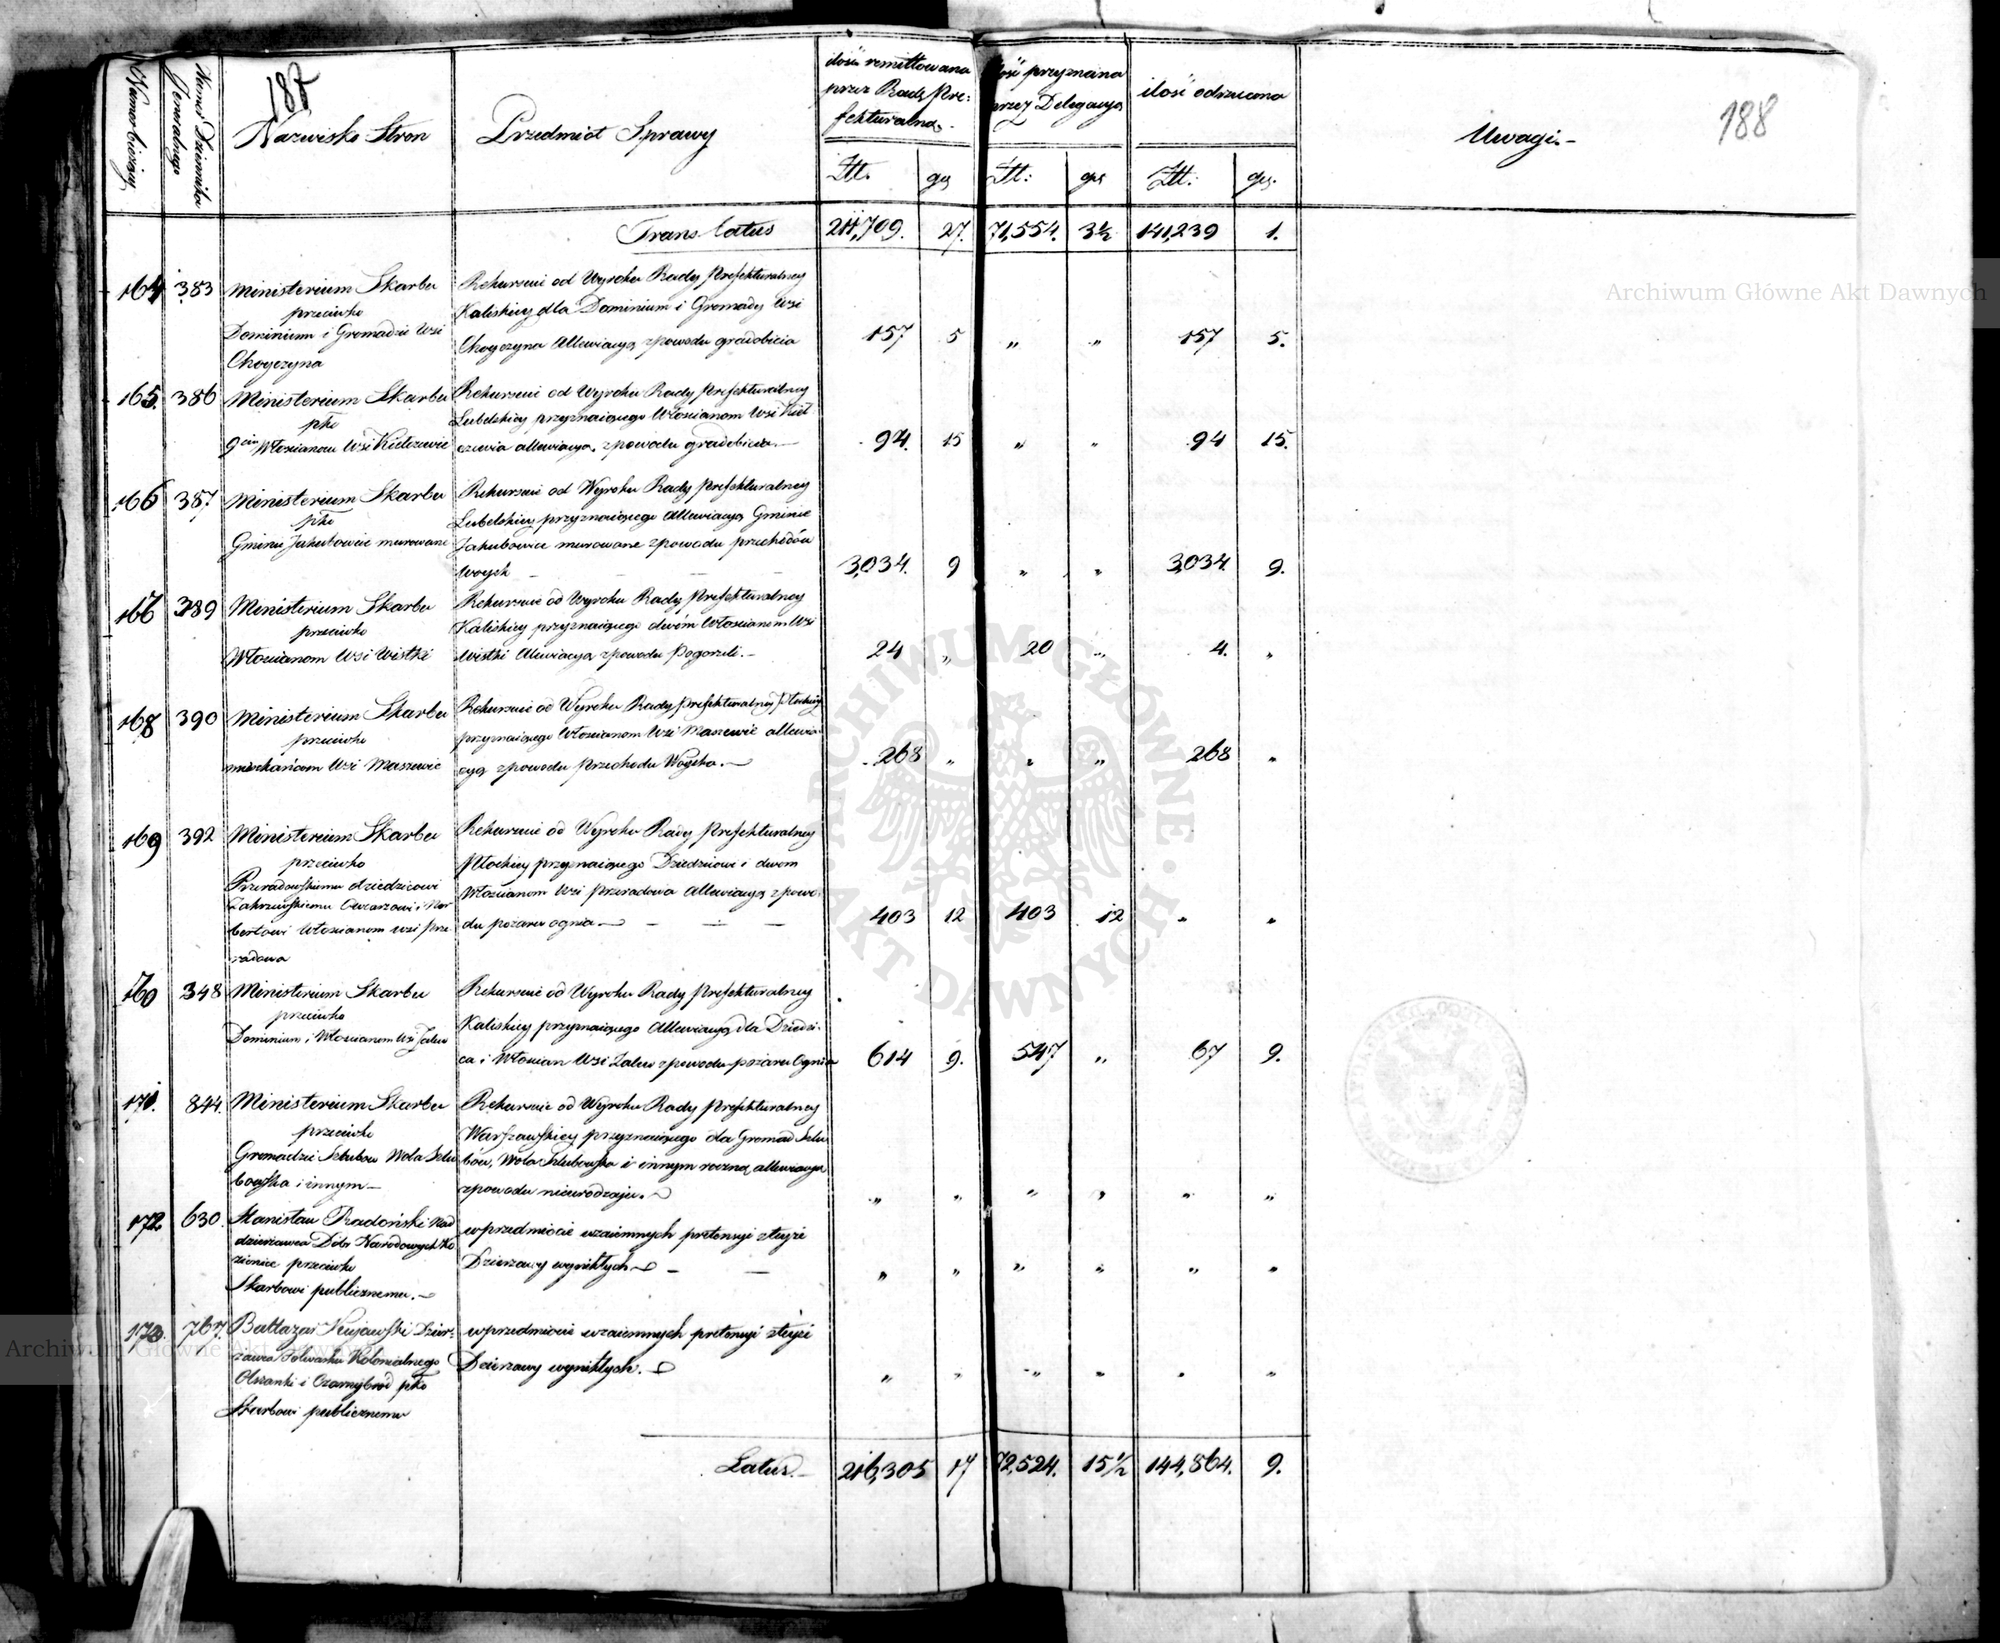 187
188
Numer bieżący
Numer Dziennika Jeneralnego
Nazwiska Stron
Przedmiot Sprawy
ilość remittowana przez Radę Prefekturalną
ilość przyznana przez Delegacyą
ilość odrzucona
Uwagi.-
Ztt. gr Ztt: gr Ztt: gr.
Translatus 211,709. 27. 71,554. 3½ 141,239 1.
164 383 Ministerium Skarbu
przeciwko
Dominium i Gromadzie Wsi
Choyczyna
Rekursuie od Wyroku Rady Prefekturalney
Kaliskiey dla Dominium i Gromady Wsi
Choyczyna Allewiacyą z powodu gradobicia 157 5 „ „ 157 5.
165. 386 Ministerium Skarbu
pko
9ciu Włościanom Wsi Kiełczewic
Rekursuie od Wyroku Rady Prefekturalney
Lubelskiey przyznaiącego Włościanom Wsi Kieł
czewia allewiacyą z powodu gradobicia.— 94. 15 „ „ 94 15.
166 387 Ministerium Skarbu
pko
Gminie Jakubowice murowane
Rekursuie od Wyroku Rady Prefekturalney
Lubelskiey przyznaiącego Allewiacyą Gminie
Jakubowice murowane z powodu przechodów
Woysk — — — 3,034. 9 „ „ 3,034. 9.
167 389 Ministerium Skarbu
przeciwko
Włościanom Wsi Wistki
Rekursuie od Wyroku Rady Prefekturalney
Kaliskiey przyznaiącego dwóm Włościanom Wsi
Wistki Allewiacyą z powodu Pogorzeli.— 24 „ 20 „ 4. „
168 390 Ministerium Skarbu
przeciwko
mieszkańcom Wsi Maszewic
Rekursuie od Wyroku Rady Prefekturalney Płockiey
przyznaiącego Włościanom Wsi Maszewic allewia
cyą z powodu Przechodu Woyska.— 268 „ „ „ 268 „
169 392 Ministerium Skarbu
przeciwko
Przeradowskiemu dziedzicowi
Zakrzewskiemu Owczarzowi i Nor
bertowi Włościanom wsi Prze
radowa
Rekursuie od Wyroku Rady Prefekturalney
Płockiey przyznaiącego Dziedzicowi i dwom
Włościanom Wsi Przeradowa Allewiacyą z powo
du pożaru ognia — — — — 403 12 403 12 „ „
170 348 Ministerium Skarbu
przeciwko
Dominium i Włościanom Wsi Zalew
Rekursuie od Wyroku Rady Prefekturalney
Kaliskiey przyznaiącego Allewiacyą dla Dziedzi-
ca i Włościan Wsi Zalew z powodu pożaru Ognia 614 9. 547 „ 67 9.
171. 844. Ministerium Skarbu
przeciwko
Gromadzie Szlubow Wola Szlu
bowska i innym —
Rekursuie od Wyroku Rady Prefekturalney
Warszawskiey przyznaiącego dla Gromad Szlu
bów, Wola Szlubowska i innym roczną allewiacyą
z powodu nieurodzaju.— „ „ „ „ „ „
172. 630. Stanisław Radoński Nad
dzierżawca Dóbr Narodowych Ko
zienice przeciwko
Skarbowi publicznemu.—
w przedmiocie wzaiemnych pretensyi z teyże
Dzierżawy wynikłych — — — „ „ „ „ „ „
173. 767. Baltazar Kujawski Dzier-
żawca Folwarku Kolonialnego
Olszanki i Czarnybród pko
Skarbowi publicznemu
w przedmiocie wzaiemnych pretensyi z teyże
Dzierżawy wynikłych.— „ „ „ „ „ „
Latus.— 216,305 17 72,524. 15½ 144,864. 9.
Archiwum Główne Akt Dawnych
Archiwum Główne Akt Dawnych
ARCHIWUM GŁÓWNE AKT DAWNYCH